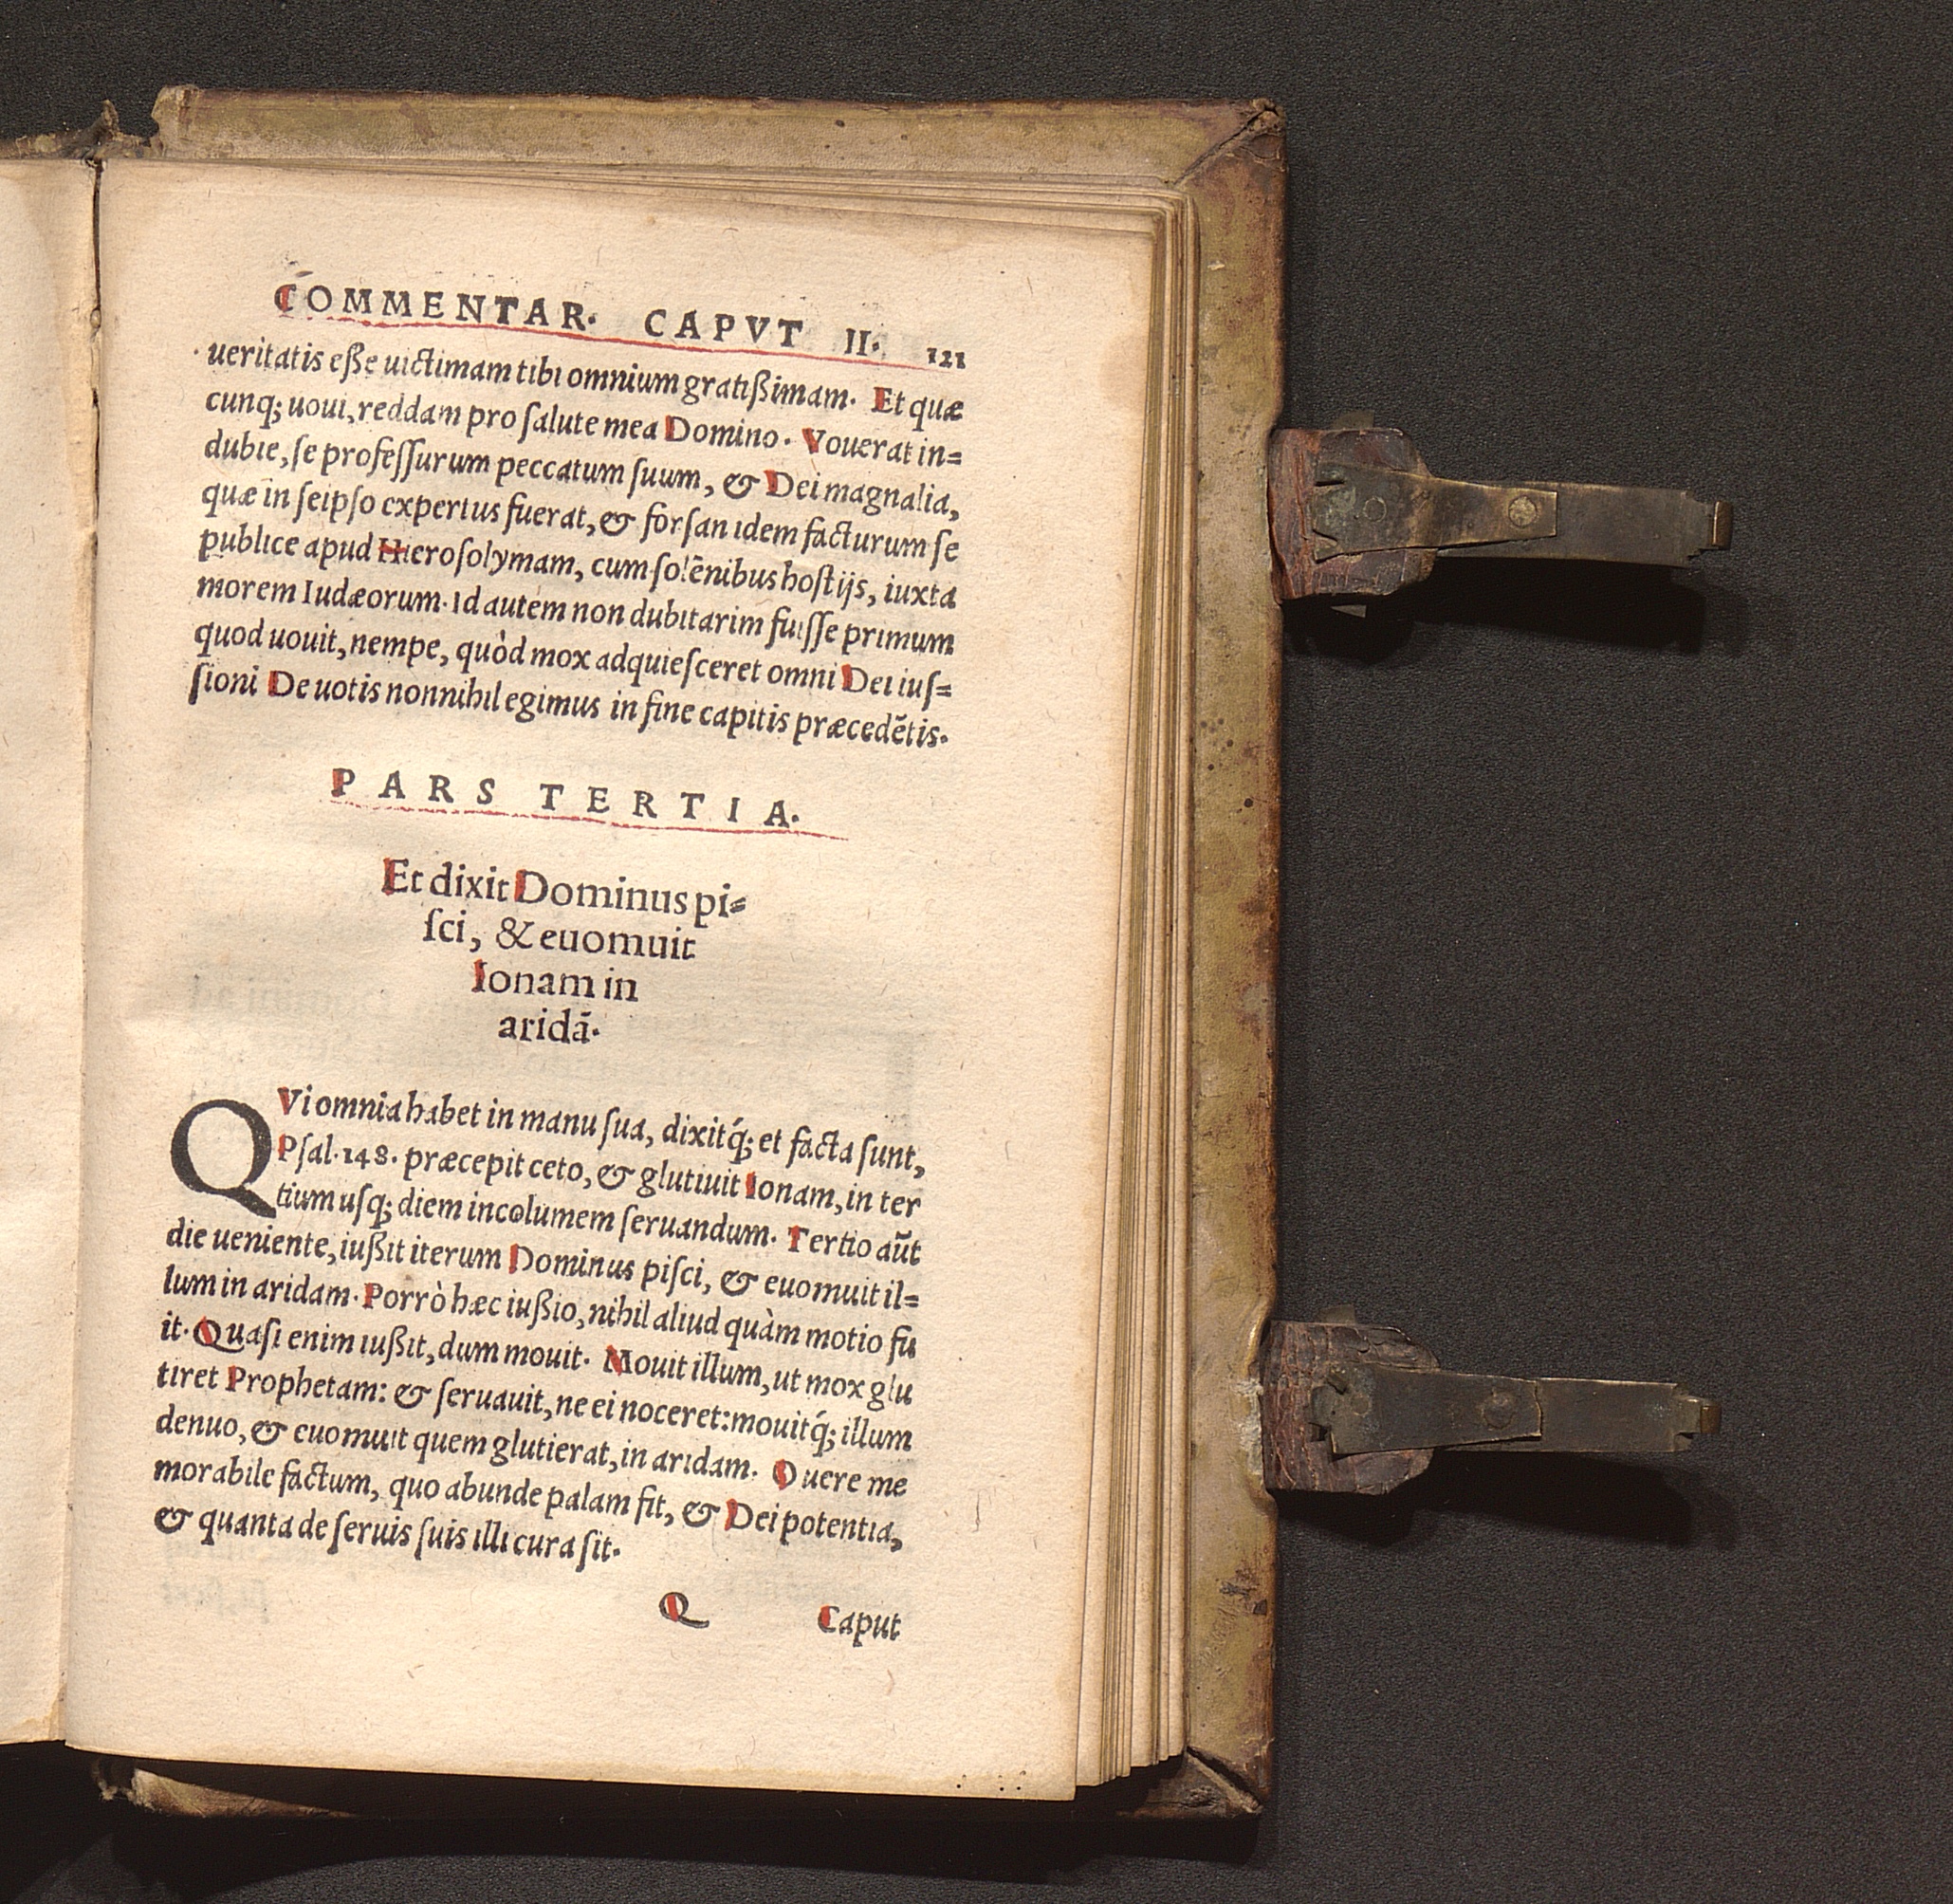 COMMENTAR. CAPVT II. 121
ueritatis eſſe uictimam tibi omnium gratißimam. Et quæ
cunq; uoui, reddam pro ſalute mea Domino. Vouerat in=
dubie, ſe profeſſurum peccatum ſuum, & Dei magnalia,
quæ in ſeipſo expertus fuerat, & forſan idem facturum ſe
publice apud Hieroſolymam, cum ſolēnibus hoſtijs, iuxta
morem Iudæorum. Id autem non dubitarim fuiſſe primum
quod uouit, nempe, quòd mox adquieſceret omni Dei iuſ=
ſioni De uotis nonnihil egimus in fine capitis præcedētis.
PARS TERTIA.
Et dixit Dominus pi=
ſci, & euomuit
Ionam in
aridā.
QVi omnia habet in manu ſua, dixitq́; et facta ſunt,
Pſal. 148. præcepit ceto, & glutiuit Ionam, in ter
tium uſq; diem incolumem ſeruandum. Tertio aūt
die ueniente, iußit iterum Dominus piſci, & euomuit il=
lum in aridam. Porrò hæc iußio, nihil aliud quàm motio fu
it. Quaſi enim iußit, dum mouit. Mouit illum, ut mox glu
tiret Prophetam: & ſeruauit, ne ei noceret: mouitq́; illum
denuo, & euomuit quem glutierat, in aridam. O uere me
morabile factum, quo abunde palam fit, & Dei potentia,
& quanta de ſeruis ſuis illi cura ſit.
Q Caput